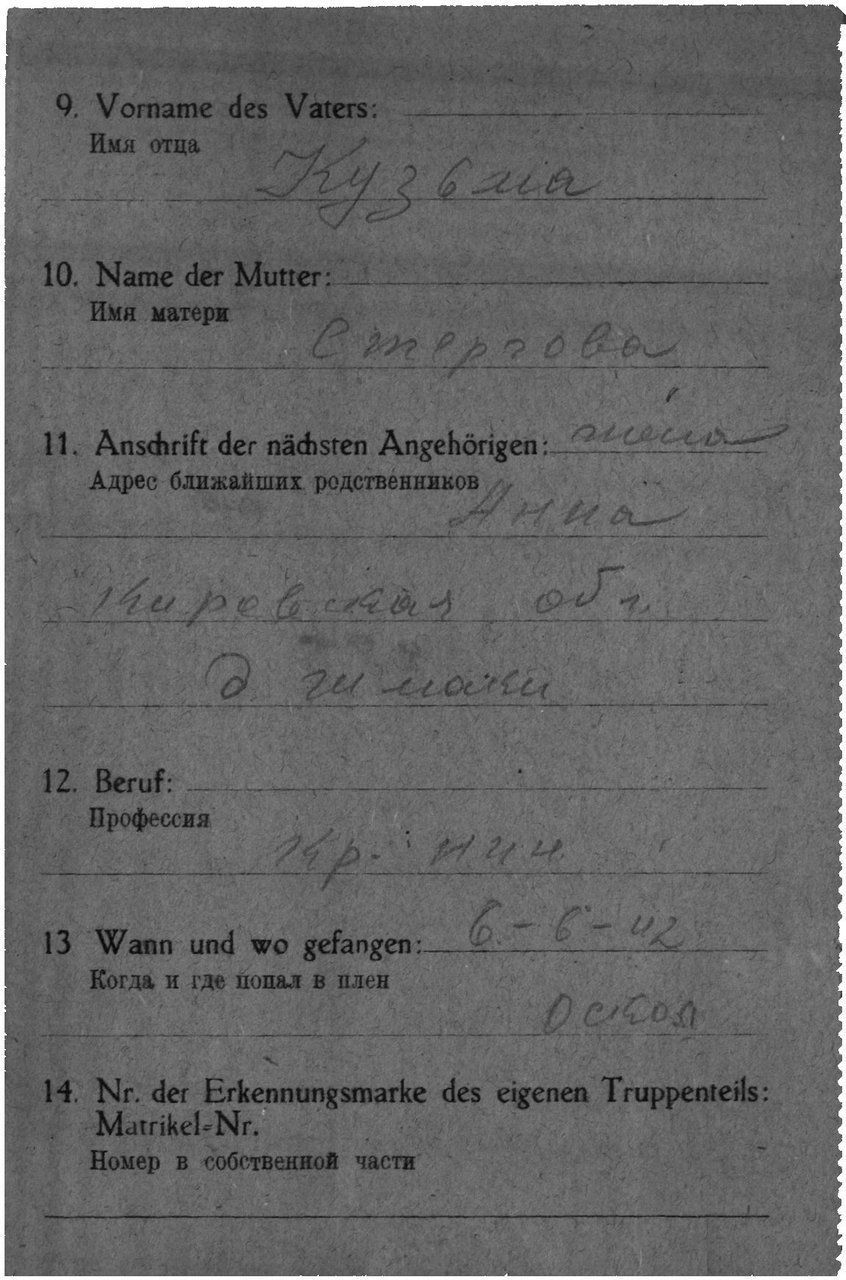 9. Vorname des Vaters:
Имя отца
Кузьма
10. Name der Mutter:
Имя матери
11. Anschrift der nächsten Angehörigen: жена
Адрес ближайших родственников
Анна
Кировская обл
д
12. Beruf:
Профессия
кр.
13 Wann und wo gefangen: 6-6-42
Когда и где попал в плен
Оскол
14. Nr. der Erkennungsmarke des eigenen Truppenteils:
Matrikel-Nr.
Номер в собственной части